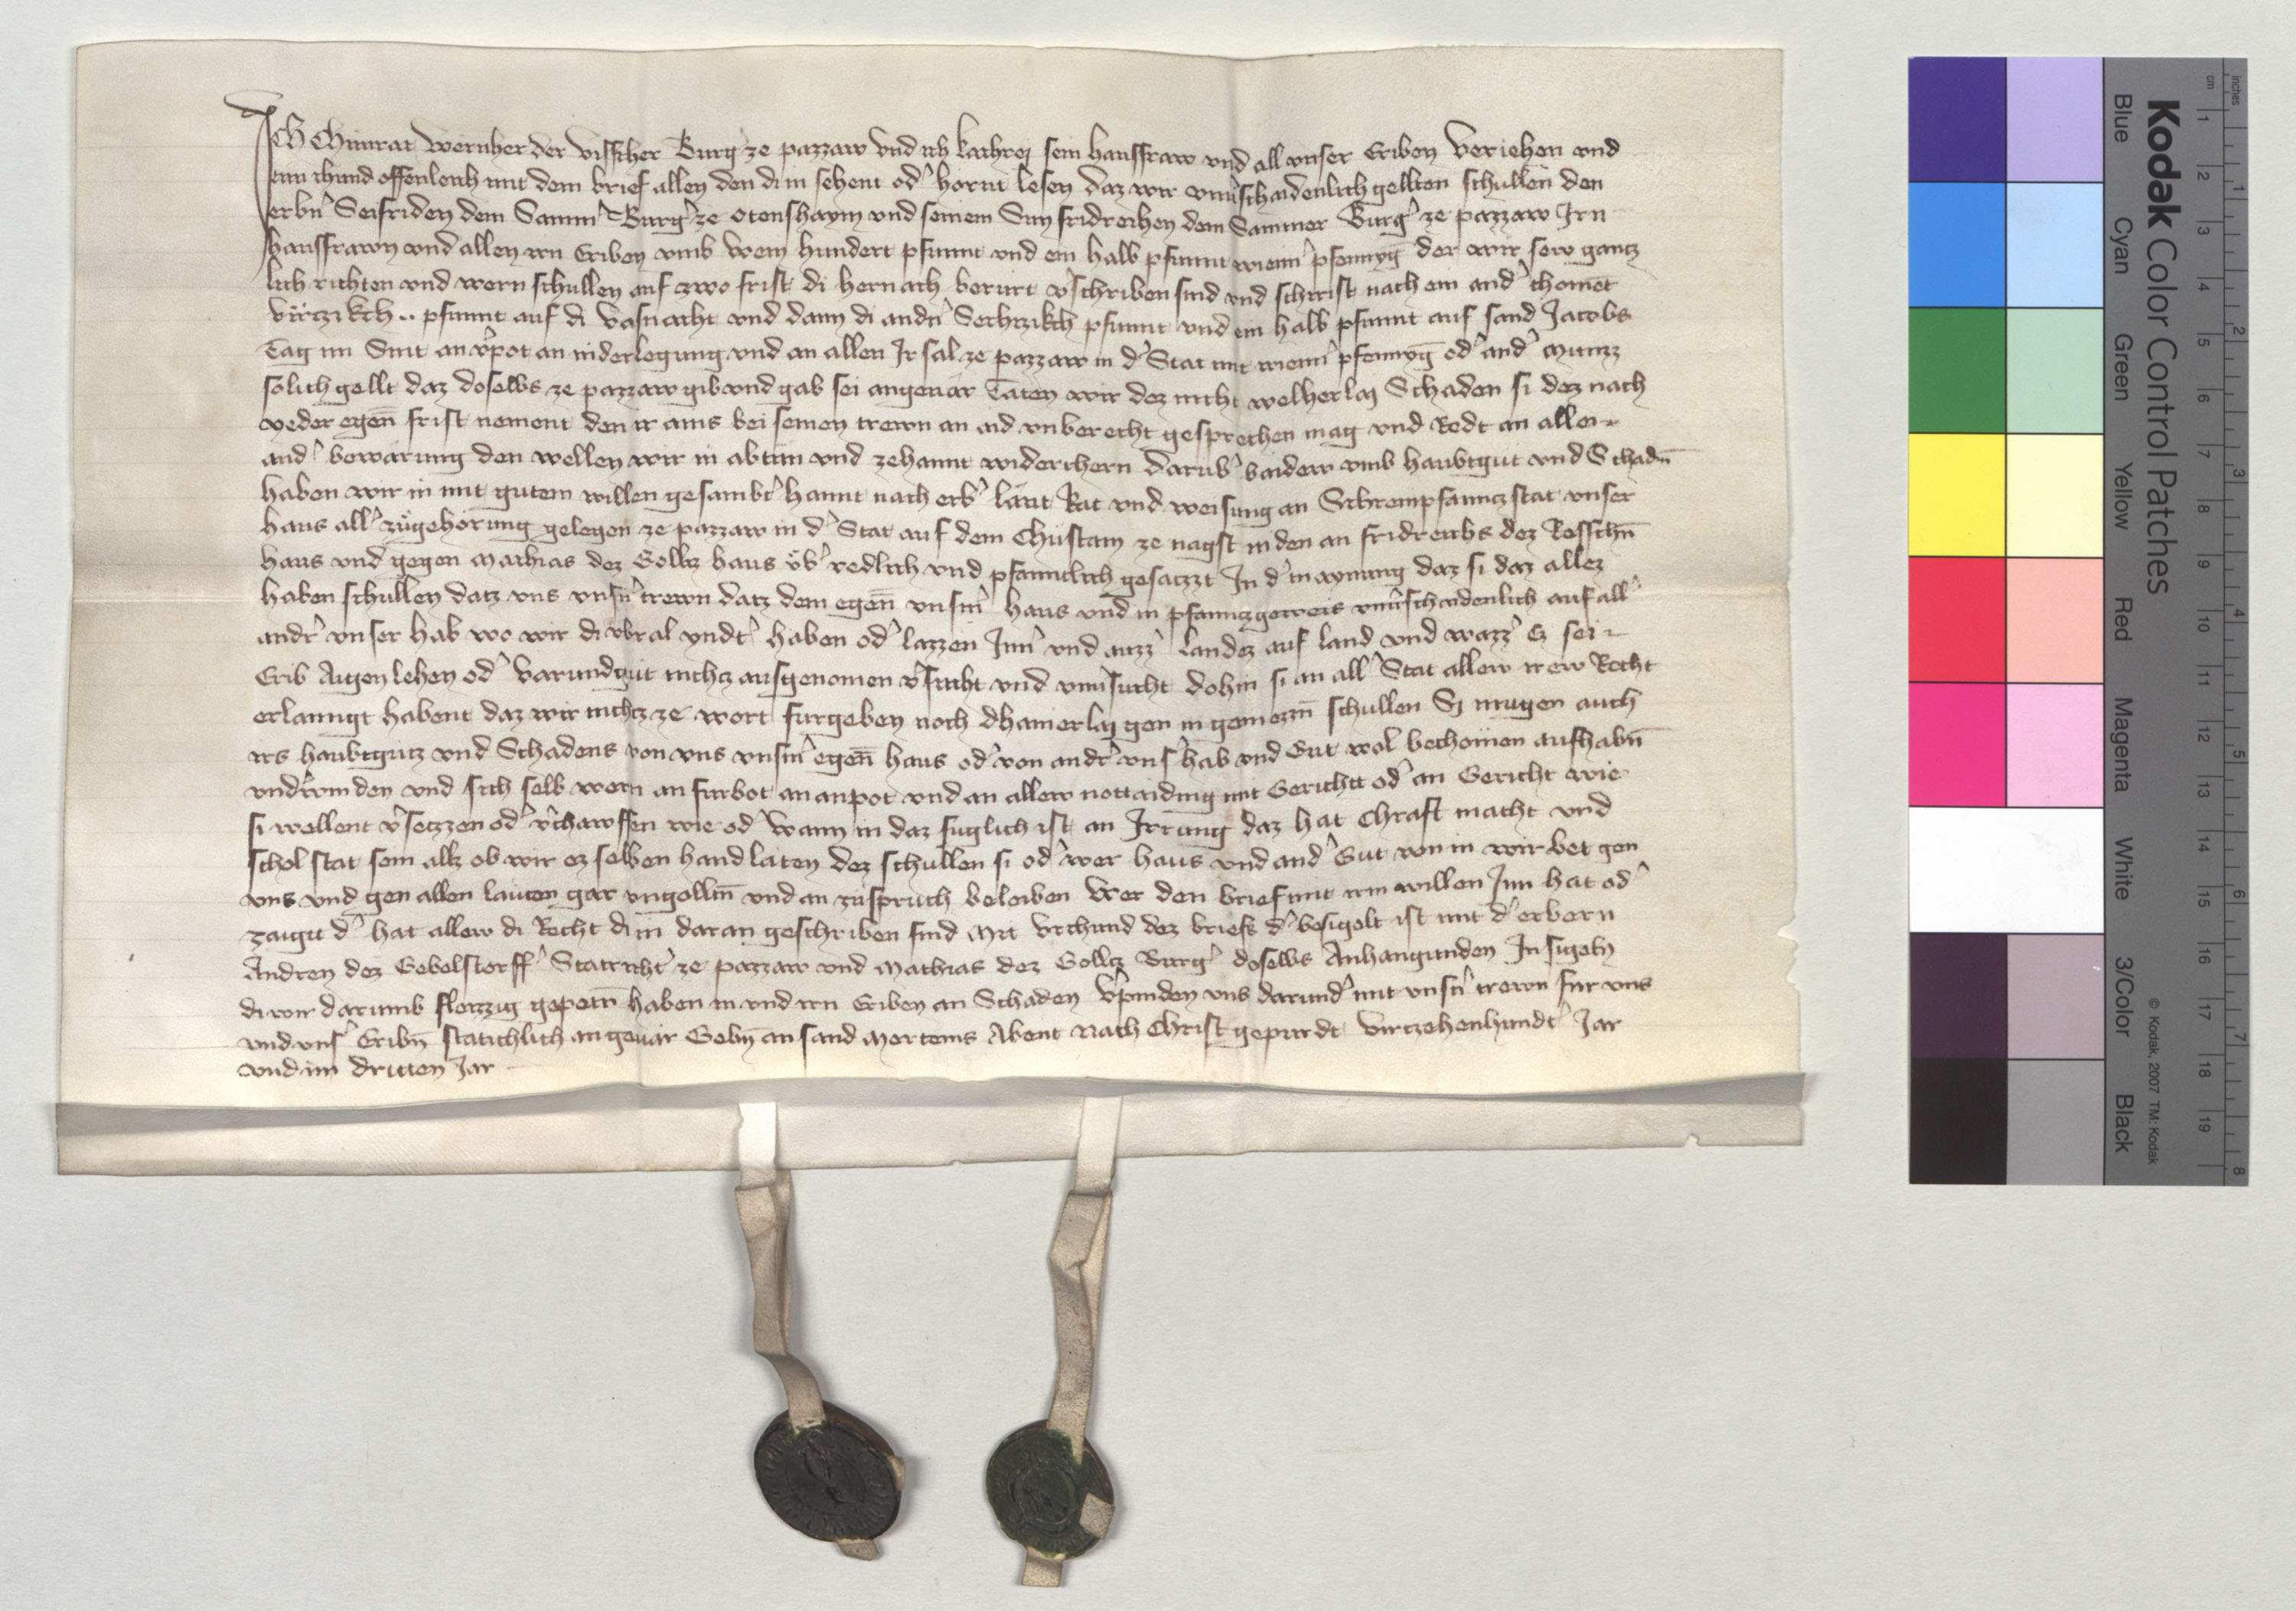 Ich Chunrat wernher der visscher Burg̉ ze pazzaw vnd ich kathrej sein hawsfraw vnd all vnser Eriben veriehen vnd
tun chund offenleich mit dem brief allen den di in sehent od̉ hornt lesen daz wir vnu̓schaidenlich gellten schullen den
erbn̉ Seifriden dem Samn̉ Burg̉ ze otenshaym vnd seinem Sun fridreichen dem Sammer Burg̉ ze pazzaw Irn
hausfrawn vnd allen irn Eriben vmb hundert pfunnt vnd ein halb pfunnt wienn̉ pfennyg̅ der wir sew gantz
lich richten vnd wern schullen auf zwo frist di hernach berürt v̓schriben sind vnd schirist nach ein and̉ chomēt
virtzikch .. pfunnt auf di vasnacht vnd dann di andn̉ Sechtzikch pfunnt vnd ein halb pfunnt auf sand Jacobs
Tag im Snit an v̓pot an niderlegung vnd an allen Irsal ze pazzaw in d̉ Stat mit wienn̉ pfennyg̅ od̉ and̉ Munzz
sölich gellt daz doselbs ze pazzaw gib vnd gab sei angeuär Täten wir dez nicht welherlaj Schaden si dez nach
yeder egen̅ frist nement den ir ains bei seinen trewn an aid vnberecht gesprechen mag vnd Redt an allen
and̉ bewärung den wellen wir in abtun vnd zehannt widerchern darub̉ baidew vmb haubtgut vnd Schadn̅
haben wir in mit gutem willen gesambt̉ hannt nach erb̉ läut Rat vnd weisung an Schrempfanntz stat vnser
haus all̉ zugehorung gelegen ze pazzaw in d̉ Stat auf dem Chüstain ze nagst niden an fridreichs dez Rosschn̅
haus vnd gegen Mathias dez Golltz haus üb̉ redlich vnd pfanntlich gesatzzt In d̉ maynung daz si daz allez
haben schullen datz vns vnsn̉ trewn datz dem egen̅ vnsm̉ haus vnd in pfanntzgeweis vnu̓schaidenlich auf all̉
andr̉ vnser hab wo wir di vbral yndt̉ haben od̉ lazzen Inn̉ vnd auzz̉ landez auf land vnd wazz̉ Ez sei
Erib Aigen lehen od̉ varundgut nichtz ausgenomen v̓sucht vnd vnu̓sucht dohin si an all̉ Stat allew irew Recht
erlanngt habent daz wir nichtz ze wort furgeben noch dhainerlaj gen in geniezzn̅ schullen Sj mugen auch
irs haubtgutz vnd Schadens von vns vnsm̉ egen̅ haus od̉ von andr̉ vns̉ hab vnd Gut wol bechomen aufhabn̅
vndr̉winden vnd sich selb wern an furbot an anpot vnd an allew nottaiding mit Gericht od̉ an Gericht wie
si wellent v̓setzzen od̉ v̓chawffen wie od̉ wann in daz fuglich ist an Irrung daz hat Chraft macht vnd
schol stat sein allz ob wir ez selben hand läten dez schullen si od̉ wer haus vnd and̉ Gut von in wirbet gen
vns vnd gen allen läuten gar vngolltn̅ vnd an züspruch beleiben Wer den brief mit irm willen Inn hat od̉
zaigt d̉ hat allew di Recht di in daran geschriben sind Mit vrchund dez briefs d̉ besigelt ist mit d̉ erbern
Andren dez Gebelstorff̉ Statricht̉ ze pazzaw vnd Mathias dez Golltz Burg̉ doselbs Anhangunden Insigeln
di wir darumb fleizzig gepetn̅ haben in vnd irn Eriben an Schaden V̓pinden vns darund̉ mit vnsn̉ trewn fur vns
vnd vns̉ Eribn̅ stätichlich angeuär Gebn̅ an sand Mertems Abent Nach Christ gepurdt virtzehenhundt̉ Jar
vnd im dritten Jar
Kodak Color Control Patches
Blue Cyan Green Yellow Red Magenta White 3/Color Black
© Kodak, 2007 TM: Kodak
inches 1 2 3 4 5 6 7 8
cm 1 2 3 4 5 6 7 8 9 10 11 12 13 14 15 16 17 18 19